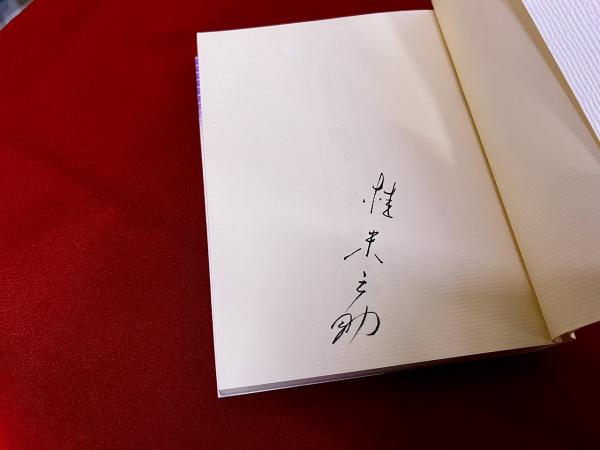 桂米之助